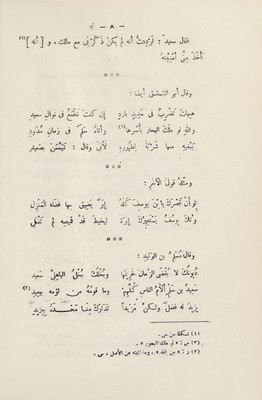 — ٨ —
فقال سعيد : لوددتُ أنه لم يكن ذكرنى مع مالك ، و [ أنه ](١)
أخذ منّى أمنيّته
وقال أبو الشمقمق أيضا :
هيهات تضرب فى حديد بارد إن كنت تطمع فى نوال سعيد
والله لو ملك البحار بأسرها(٢) وأتاه سلم فى زمان مدود
يبغيه منها شربة لطهوره لأبى وقال : تيممن بصعيد
***
ومثله قول الآخر :
لو أن قصرك يا ابن يوسف كله إبر يضيق بها فضاء المنزل
وأتاك يوسف يستعيرك إبرة ليخيط قد قميصه لم تفعل
***
وقال مسلم بن الوليد :
ديونك لا يقضى الزمان غريمها وبخلك بخل الباهلى سعيد
سعيد بن سلم ألأم الناس كلهم وما قومه من لؤمه ببعيد(٣)
يزيد له فضل ولكن مزيدا تدارك منا مجده بيزيد
(١) تسكلة من س .
(٢) س : « لو ملك البحور » .